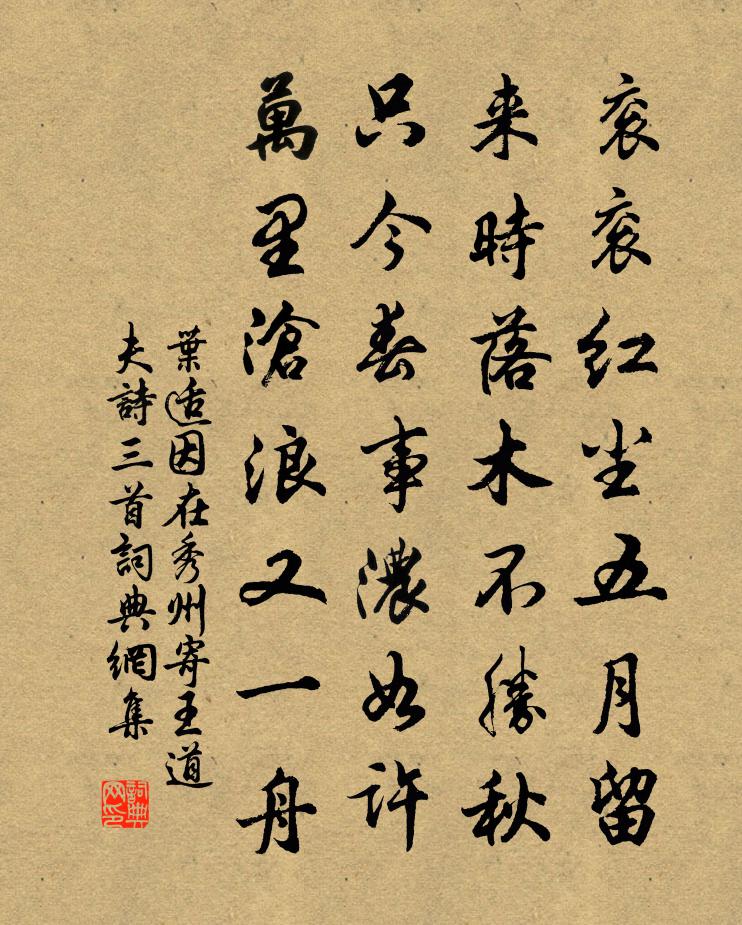 衮衮红尘五月留
来時落木不勝秋
只今春事濃如許
萬里滄浪又一舟
葉适因在秀州寄王道
夫詩三首詞典網集
詞典网印